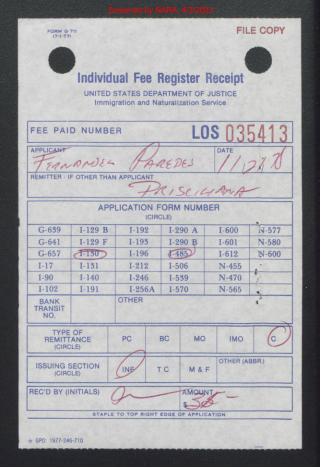 Scanned by NARA, 4/3/2013
FORM G 711
(7-1-77)
FILE COPY
Individual Fee Register Receipt
UNITED STATES DEPARTMENT OF JUSTICE
Immigration and Naturalization Service
FEE PAID NUMBER LOS 035413
APPLICANT DATE
FERNANDEZ PAREDES
REMITTER - IF OTHER THAN APPLICANT
PRISCILIANA
APPLICATION FORM NUMBER
(CIRCLE)
G-639 I-129 B I-192 I-290 A I-600 N-577
G-641 I-129 F I-193 I-290 B I-601 N-580
G-657 I-130 I-196 I-485 I-612 N-600
I-17 I-131 I-212 I-506 N-455
I-90 I-140 I-246 I-539 N-470
I-102 I-191 I-256A I-570 N-565
BANK TRANSIT NO. OTHER
TYPE OF REMITTANCE (CIRCLE) PC BC MO IMO C
ISSUING SECTION (CIRCLE) INF T C M & F OTHER (ABBR.)
REC'D BY (INITIALS) AMOUNT
$
STAPLE TO TOP RIGHT EDGE OF APPLICATION
GPO: 1977-246-710